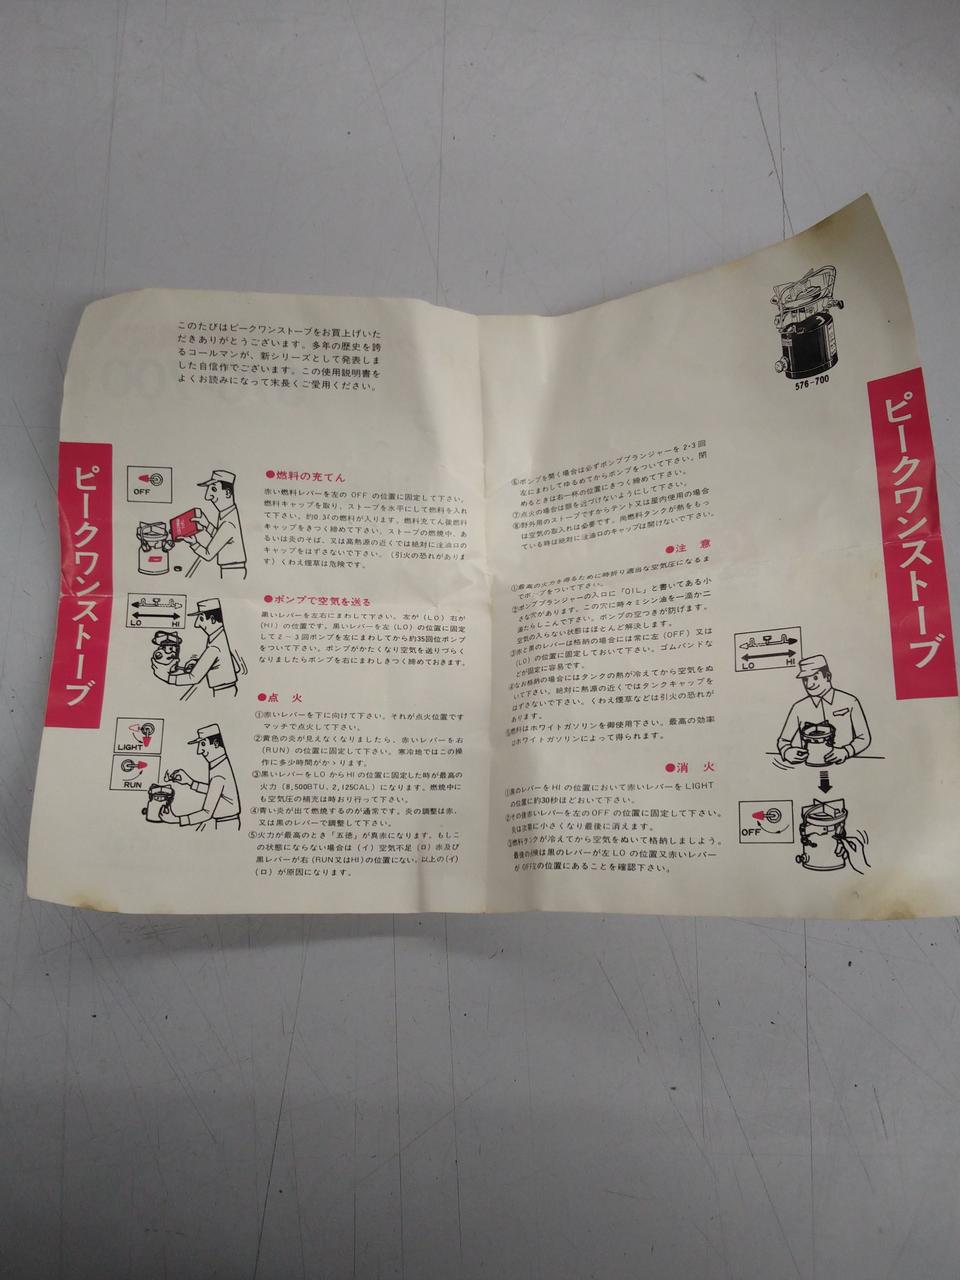 このたびはピークワンストーブをお買上げいた
だきありがとうございます。多年の歴史を誇
るコールマンが、新シリーズとして発表しま
した自信作でございます。この使用説明書を
よくお読みになって末長くご愛用ください。
ピークワンストーブ
OFF
●燃料の充てん
赤い燃料レバーを左の OFF の位置に固定して下さい。
燃料キャップを取り、ストーブを水平にして燃料を入れ
て下さい。約0.3ℓの燃料が入ります。燃料充てん後燃料
キャップをきつく締めて下さい。ストーブの燃焼中、あ
るいは炎のそば、又は高熱源の近くでは絶対に注油口の
キャップをはずさないで下さい。(引火の恐れがありま
す)くわえ煙草は危険です。
LO HI
●ポンプで空気を送る
黒いレバーを左右にまわして下さい。左が(LO)右が
(HI)の位置です。黒いレバーを左(LO)の位置に固定
して2〜3回ポンプを左にまわしてから約35回位ポンプ
をついて下さい。ポンプがかたくなり空気を送りづらく
なりましたらポンプを右にまわしきつく締めておきます。
LIGHT
RUN
●点 火
①赤いレバーを下に向けて下さい。それが点火位置です
マッチで点火して下さい。
②黄色の炎が見えなくなりましたら、赤いレバーを右
(RUN)の位置に固定して下さい。寒冷地ではこの操
作に多少時間がかゝります。
③黒いレバーをLOからHIの位置に固定した時が最高の
火力(8,500BTU、2,125CAL)になります。燃焼中に
も空気圧の補充は時おり行って下さい。
④青い炎が出て燃焼するのが通常です。炎の調整は赤、
又は黒のレバーで調整して下さい。
⑤火力が最高のとき「五徳」が真赤になります。もしこ
の状態にならない場合は(イ)空気不足(ロ)赤及び
黒レバーが右(RUN又はHI)の位置にない。以上の(イ)
(ロ)が原因になります。
576-700
ピークワンストーブ
⑥ポンプを開く場合は必ずポンププランジャーを2・3回
左にまわしてゆるめてからポンプをついて下さい。閉
めるときは右一杯の位置にきつく締めて下さい。
⑦点火の場合は顔を近づけないようにして下さい。
⑧野外用のストーブですからテント又は屋内使用の場合
は空気の取入れは必要です。尚燃料タンクが熱をもっ
ている時は絶対に注油口のキャップは開けないで下さい。
●注 意
①最高の火力を得るために時折り適当な空気圧になるま
でポンプをついて下さい。
②ポンププランジャーの入口に「OIL」と書いてある小
さな穴があります。この穴に時々ミシン油を一滴か二
滴たらしこんで下さい。ポンプの空つきが防げます。
空気の入らない状態はほとんど解決します。
③赤と黒のレバーは格納の場合には常に左(OFF)又は
(LO)の位置に固定しておいて下さい。ゴムバンドな
どが固定に容易です。
④なお格納の場合にはタンクの熱が冷えてから空気をぬ
いて下さい。絶対に熱源の近くではタンクキャップを
はずさないで下さい。くわえ煙草などは引火の恐れが
あります。
⑤燃料はホワイトガソリンを御使用下さい。最高の効率
はホワイトガソリンによって得られます。
LO HI
●消 火
①黒のレバーをHIの位置において赤いレバーをLIGHT
の位置に約30秒ほどおいて下さい。
②その後赤いレバーを左のOFFの位置に固定して下さい。
炎は次第に小さくなり最後に消えます。
③燃料タンクが冷えてから空気をぬいて格納しましょう。
最後の点検は黒のレバーが左LOの位置又赤いレバー
がOFFの位置にあることを確認下さい。
OFF